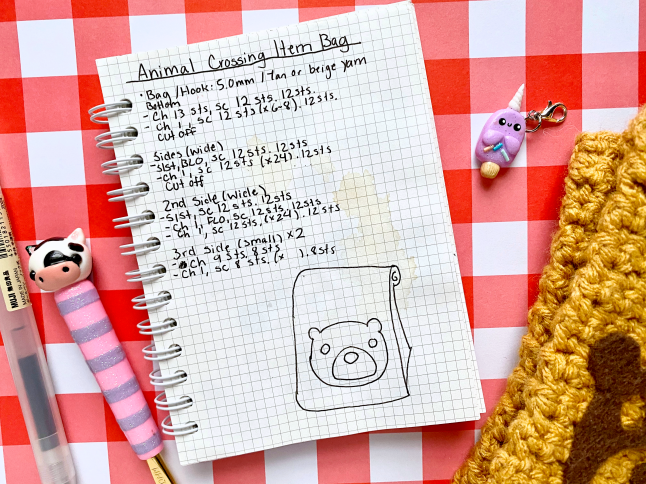 Animal Crossing Item Bag
• Bag / Hook: 5.0mm / Tan or beige yarn
Bottom
- Ch 13 sts, sc 12 sts. 12sts.
- Ch 1, sc 12 sts (x6-8). 12sts.
Cut off
Sides (wide)
- slst, BLO, sc 12sts. 12sts
- ch 1, sc 12sts (x24). 12sts
Cut off
2nd Side (Wide)
- slst, sc 12sts. 12sts
- Ch 1, FLO, sc 12sts. 12sts
- Ch 1, sc 12sts, (x24). 12sts
3rd Side (small) x2
- Ch 9 sts. 8sts
- Ch 1, sc 8 sts. (x ). 8sts
MUJI
MADE IN JAPAN